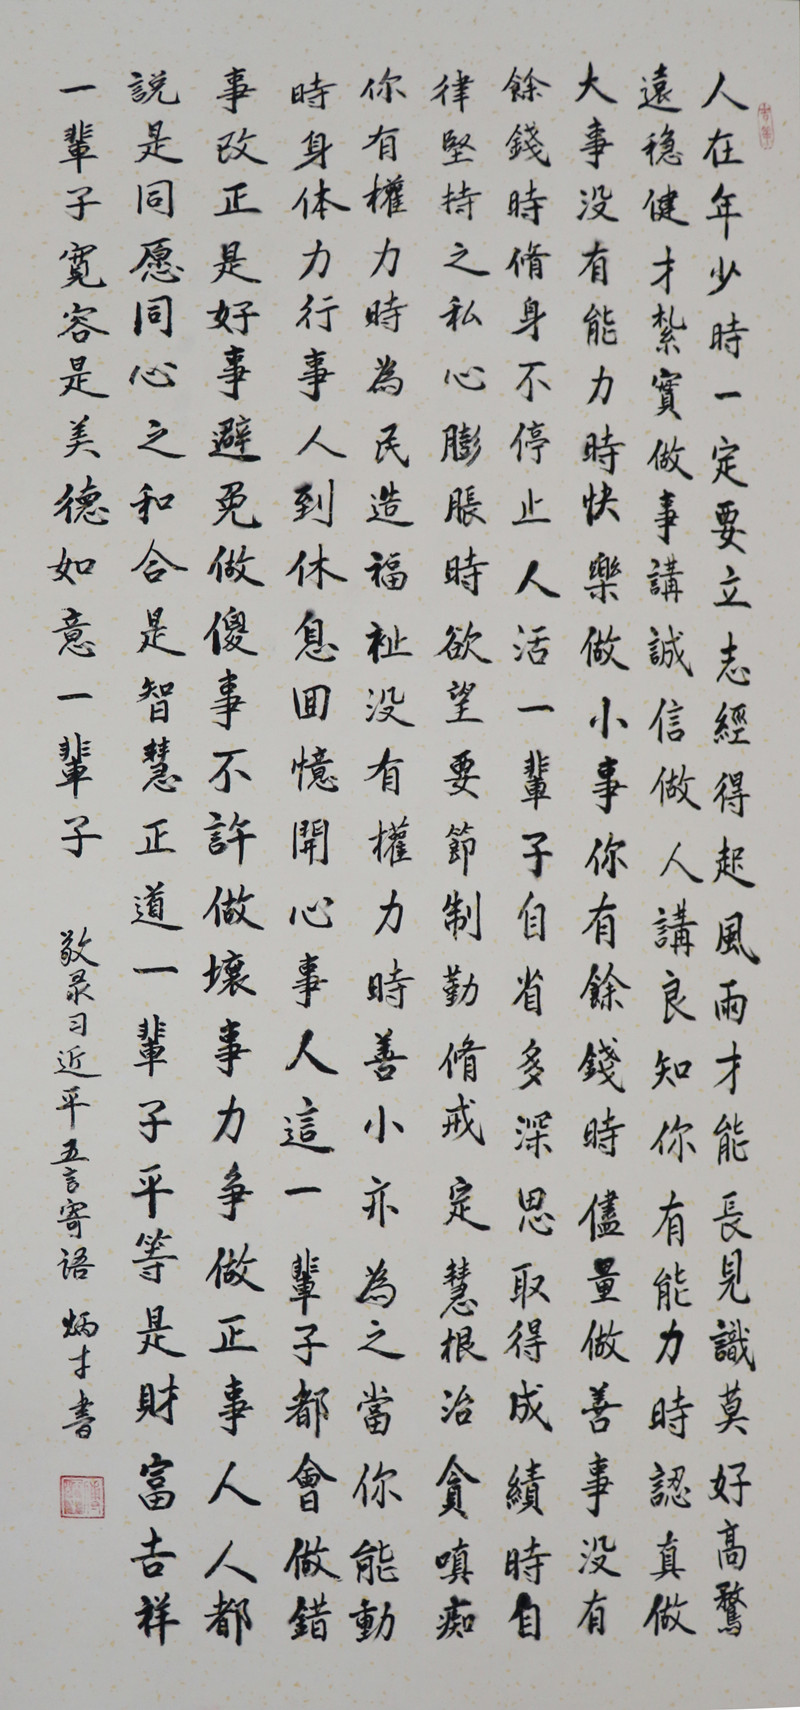 人在年少時一定要立志經得起風雨才能長見識莫好高騖
遠穩健才紮實做事講誠信做人講良知你有能力時認真做
大事没有能力時快樂做小事你有餘錢時儘量做善事没有
餘錢時脩身不停止人活一輩子自省多深思取得成績時自
律堅持之私心膨脹時欲望要節制勤脩戒定慧根治貪嗔痴
你有權力時為民造福祉没有權力時善小亦為之當你能動
時身体力行事人到休息回憶開心事人這一輩子都會做錯
事改正是好事避免做傻事不許做壞事力争做正事人人都
説是同愿同心之和合是智慧正道一輩子平等是財富吉祥
一輩子寬容是美德如意一輩子
敬录习近平五言寄語 炳才書